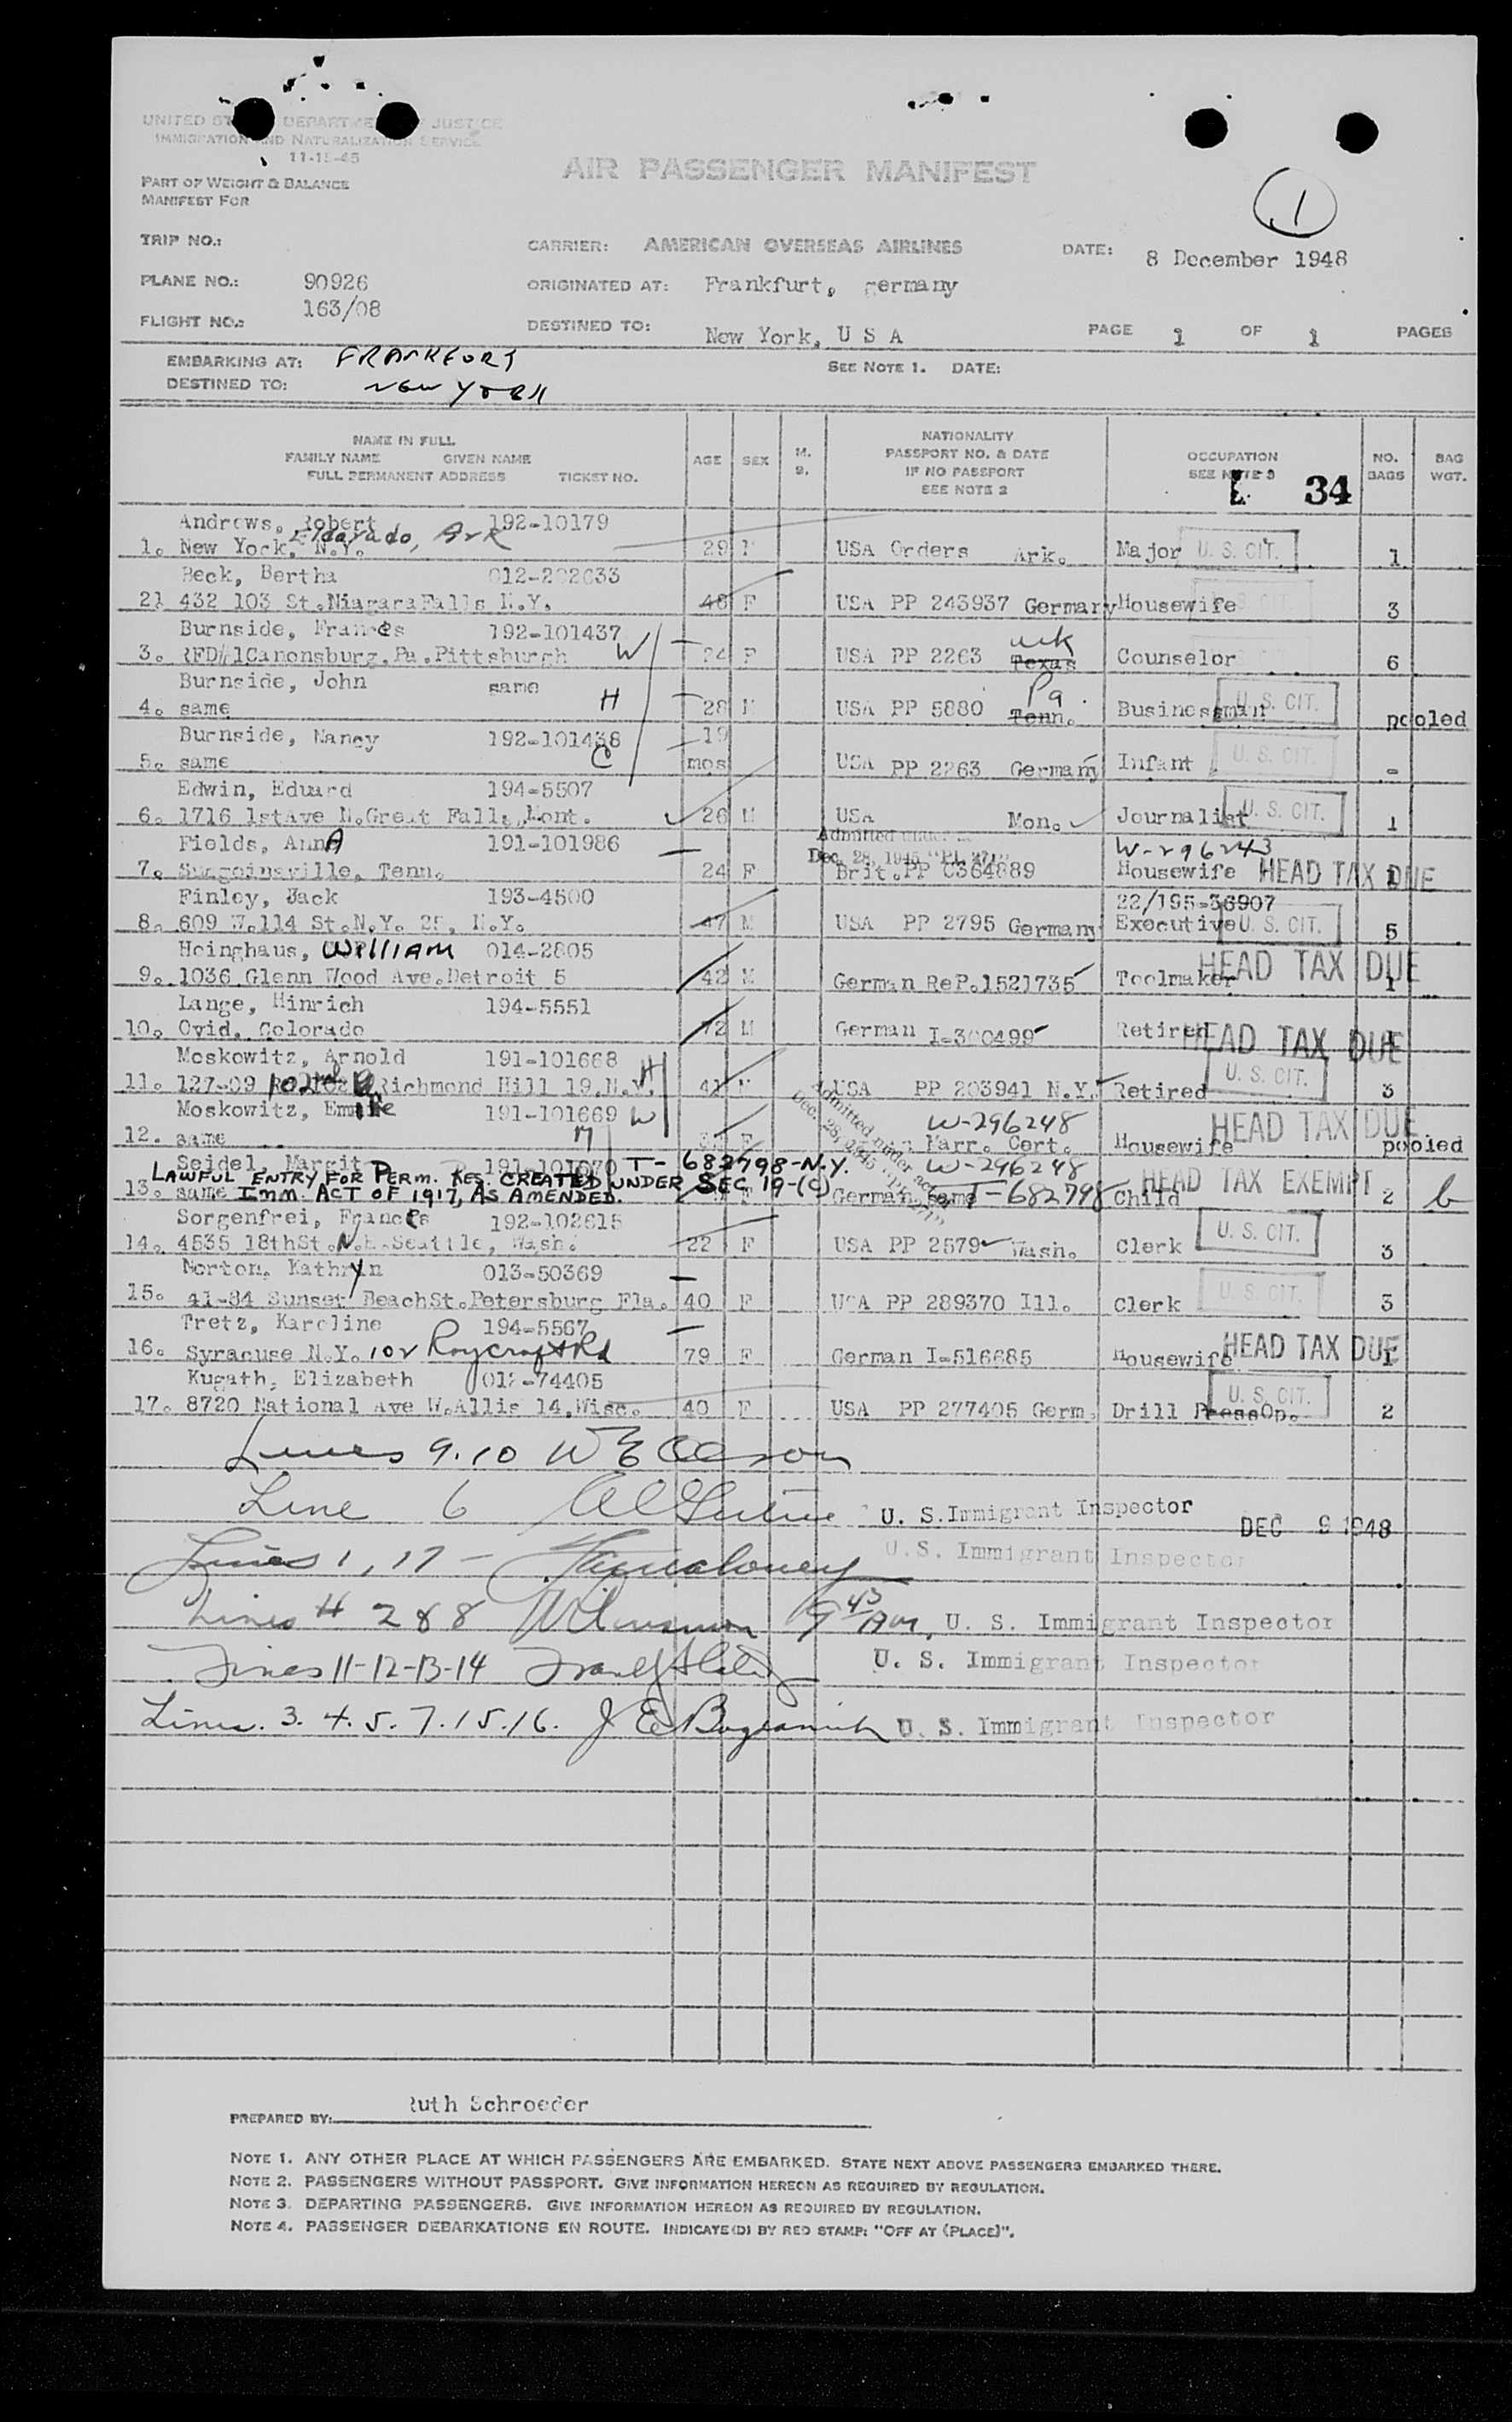 UNITED ST DEPARTME JUSTICE
IMMIGRATION AND NATURALIZATION SERVICE
11-15-45
AIR PASSENGER MANIFEST
PART OF WEIGHT & BALANCE
MANIFEST FOR
1
TRIP NO.:
CARRIER: AMERICAN OVERSEAS AIRLINES DATE: 8 December 1948
PLANE NO.: 90926 ORIGINATED AT: Frankfurt, germany
163/08
FLIGHT NO.: DESTINED TO: New York, U S A PAGE 1 OF 1 PAGES
EMBARKING AT: FRANKFORT SEE NOTE 1. DATE:
DESTINED TO: NEW YORK
NAME IN FULL
FAMILY NAME GIVEN NAME
FULL PERMANENT ADDRESS TICKET NO.
AGE SEX M. S.
NATIONALITY
PASSPORT NO. & DATE
IF NO PASSPORT
SEE NOTE 2
OCCUPATION
SEE NOTE 3
NO. BAGS
BAG WGT.
L 34
Andrews, Robert 192-10179
Eldorado, Ark
1. New York, N.Y. 29 M USA Orders Ark. Major U. S. CIT. 1
Beck, Bertha 012-202633
21 432 103 St.NiagaraFalls N.Y. 48 F USA PP 243937 Germany Housewife 3
Burnside, Frances 192-101437
3. RFD#1Canonsburg.Pa.Pittsburgh W 24 F USA PP 2263 Texas Counselor 6
Burnside, John same
4. same H 28 M USA PP 5880 Tenn. Pa. Businessman U. S. CIT. pooled
Burnside, Nancy 192-101438 19
5. same C mos USA PP 2263 Germany Infant U. S. CIT. -
Edwin, Eduard 194-5507
6. 1716 1stAve N.Great Falls,Mont. 26 M USA Mon. Journalist U. S. CIT. 1
Fields, AnnA 191-101986 W-296243
7. Tenn. 24 F Brit.PP C364889 Housewife HEAD TAX DUE
Finley, Jack 193-4500 22/195-36907
8. 609 W.114 St.N.Y. 25, N.Y. 47 M USA PP 2795 Germany Executive U. S. CIT. 5
Hoinghaus, WILLIAM 014-2805
9. 1036 Glenn Wood Ave.Detroit 5 42 M German ReP.1521735 Toolmaker HEAD TAX DUE 1
Lange, Hinrich 194-5551
10. Ovid, Colorado 72 M German I-300499 Retired HEAD TAX DUE
Moskowitz, Arnold 191-101668 H
11. 127-09 Richmond Hill 19.N.Y. 41 M USA PP 203941 N.Y. Retired U. S. CIT. 3
Moskowitz, 191-101669 W W-296248
12. same F Marr. Cert. Housewife HEAD TAX DUE pooled
Seidel, Margit 191-101670 T-682798-N.Y. W-296248
LAWFUL ENTRY FOR PERM. RES. CREATED UNDER SEC 19-(C)
13. same IMM. ACT OF 1917, AS AMENDED. F German same T-682798 Child HEAD TAX EXEMPT 2
Sorgenfrei, Frances 192-102615
14. 4535 18thSt.N.E.Seattle, Wash. 22 F USA PP 2579 Wash. Clerk U. S. CIT. 3
Norton, Kathryn 013-50369
15. 41-84 Sunset BeachSt.Petersburg Fla. 40 F USA PP 289370 Ill. Clerk U. S. CIT. 3
Tretz, Karoline 194-5567
16. Syracuse N.Y. 102 Roycroft Rd 79 F German I-516685 Housewife HEAD TAX DUE 1
Kugath, Elizabeth 012-74405
17. 8720 National Ave W.Allis 14,Wisc. 40 F USA PP 277405 Germ. Drill PressOp. U. S. CIT. 2
Lines 9.10
Line 6 U. S. Immigrant Inspector DEC 9 1948
Lines 1, 17 - U. S. Immigrant Inspector
Lines # 2 & 8 9 43 AM, U. S. Immigrant Inspector
Lines 11-12-13-14 U. S. Immigrant Inspector
Lines. 3. 4. 5. 7. 15. 16. U. S. Immigrant Inspector
PREPARED BY: Ruth Schroeder
NOTE 1. ANY OTHER PLACE AT WHICH PASSENGERS ARE EMBARKED. STATE NEXT ABOVE PASSENGERS EMBARKED THERE.
NOTE 2. PASSENGERS WITHOUT PASSPORT. GIVE INFORMATION HEREON AS REQUIRED BY REGULATION.
NOTE 3. DEPARTING PASSENGERS. GIVE INFORMATION HEREON AS REQUIRED BY REGULATION.
NOTE 4. PASSENGER DEBARKATIONS EN ROUTE. INDICATE(D) BY RED STAMP: "OFF AT (PLACE)".